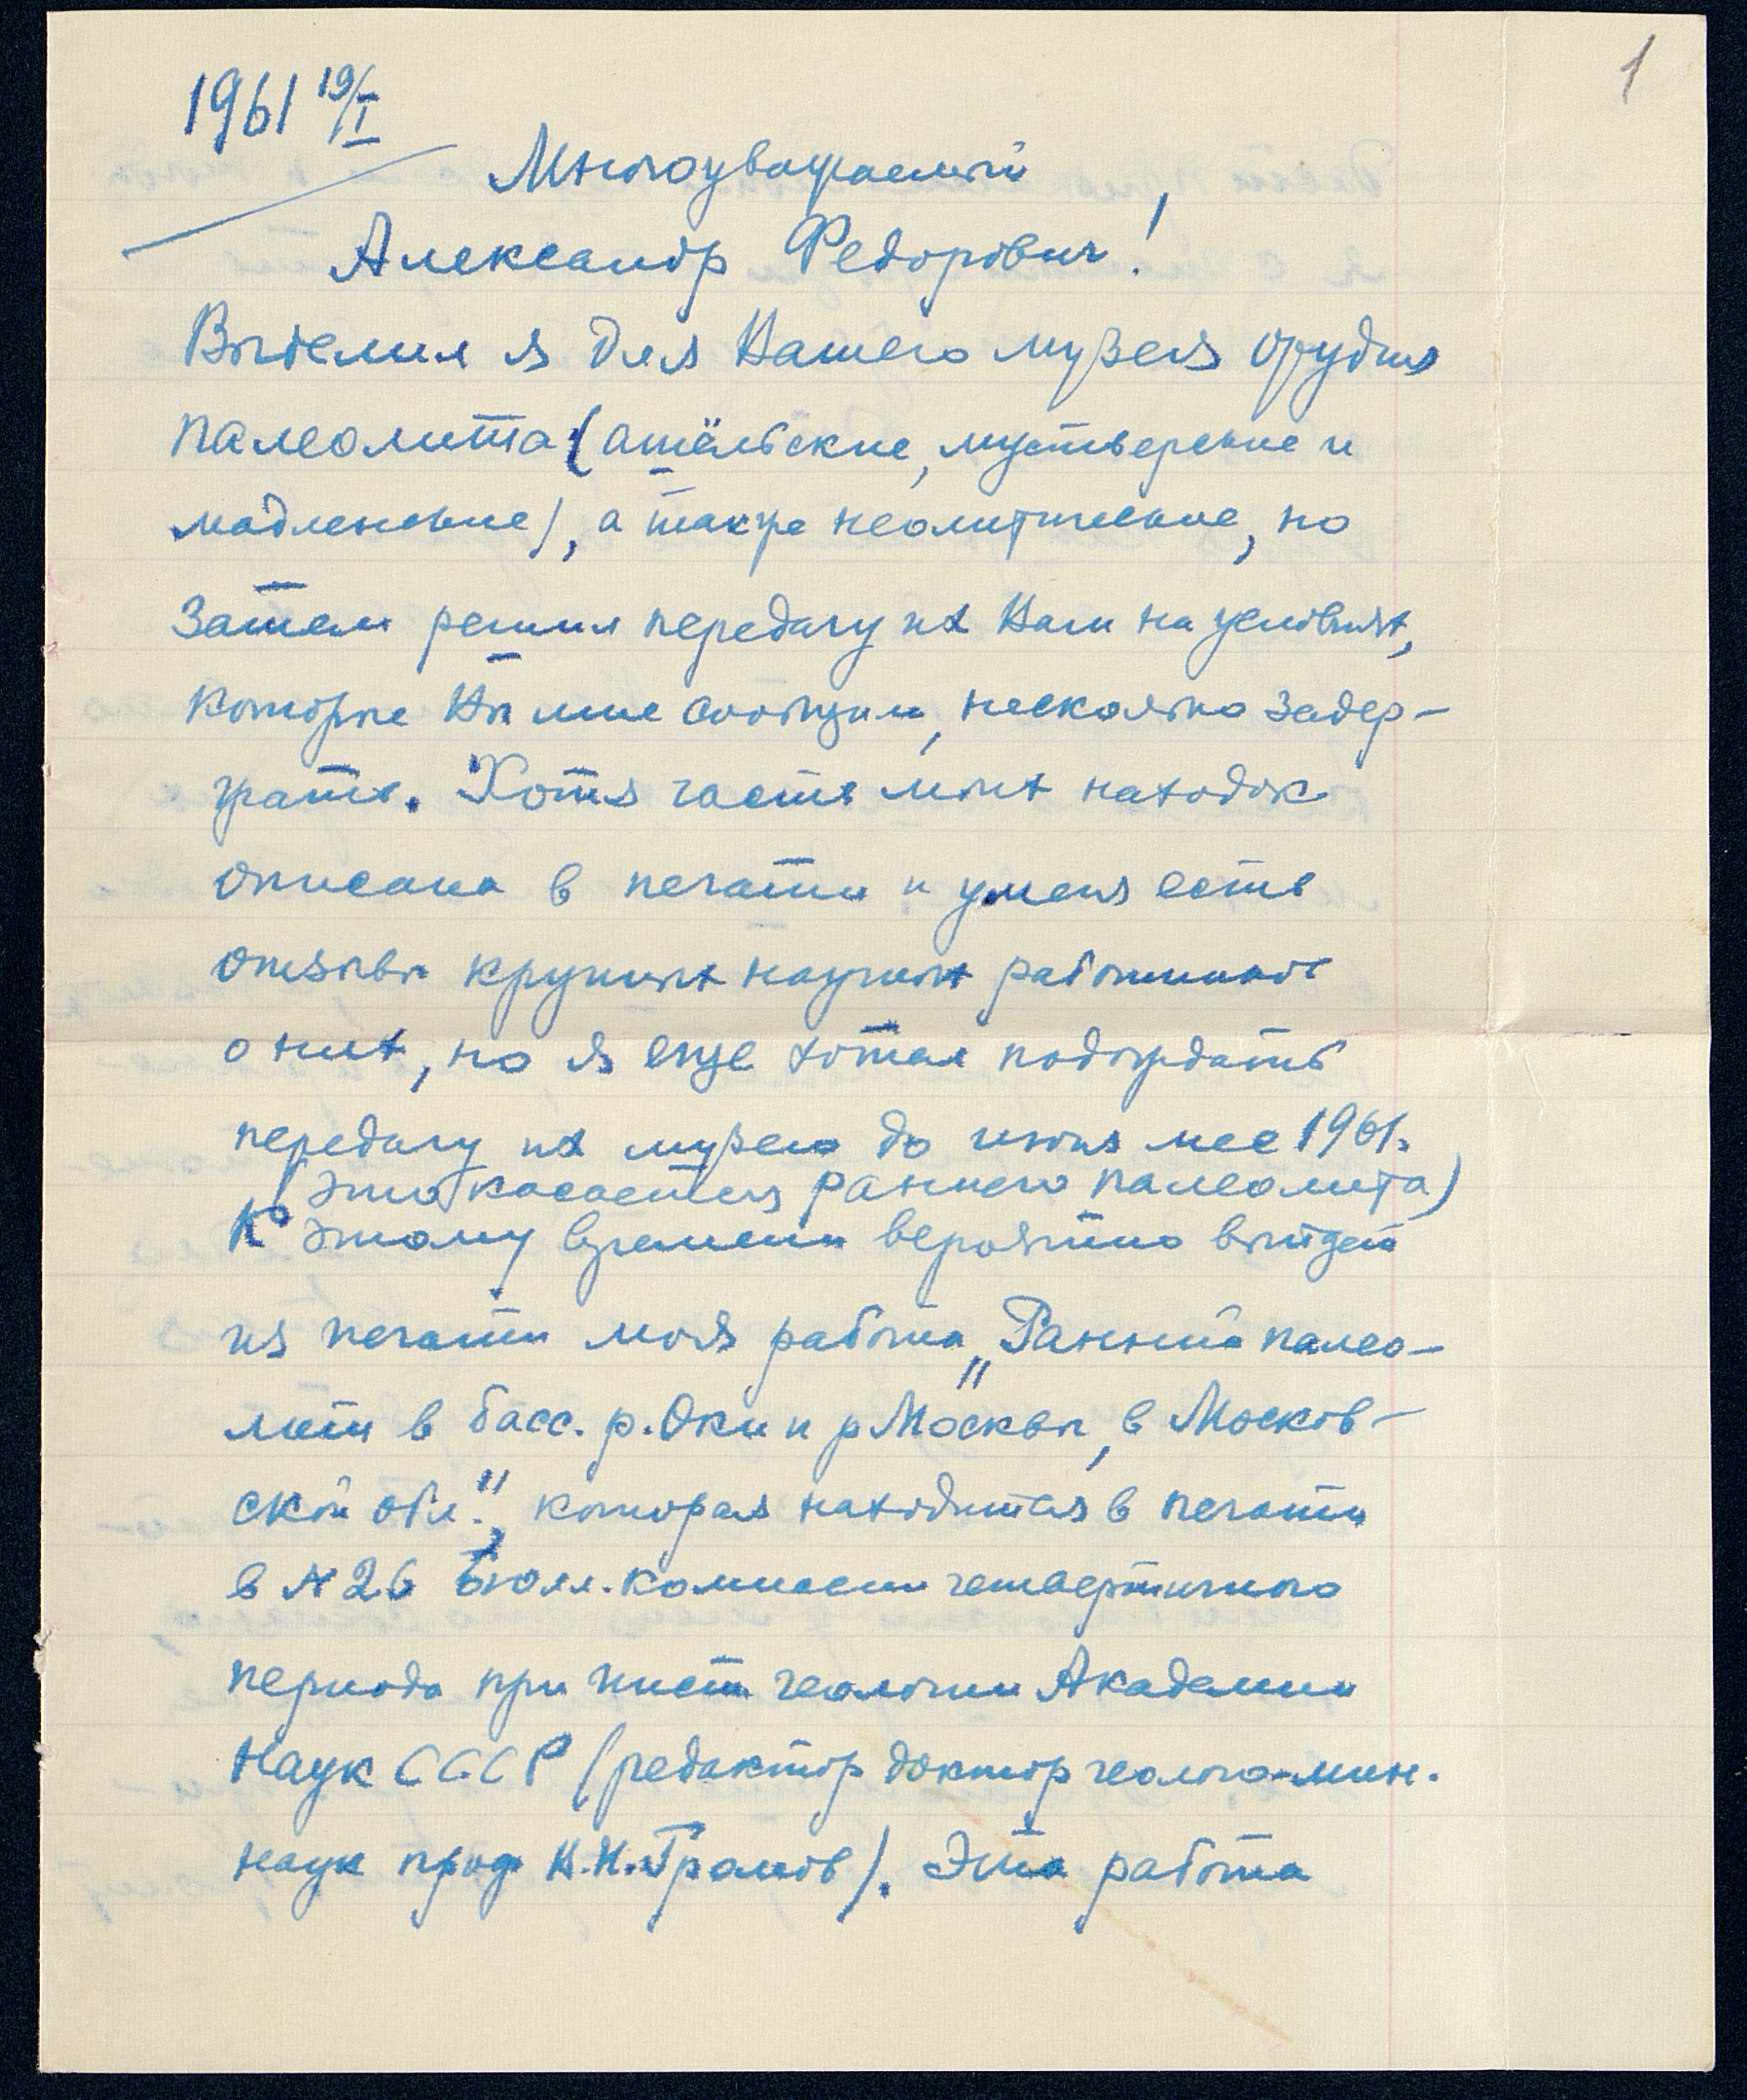 1
1961 19/I
Многоуважаемый,
Александр Федорович!
Выделил я для Вашего музея орудия
палеолита (ашёльские, мустьерские и
мадленские), а также неолитические, но
затем решил передачу их Вам на условиях,
которые Вы мне сообщили, несколько задер-
жать. Хотя часть моих находок
описана в печати и у меня есть
отзывы крупных научных работников
о них, но я еще хотел подождать
передачу их музею до июня мес 1961.
(это касается раннего палеолита)
К этому времени вероятно выйдет
из печати моя работа „Ранний палео-
лит в басс. р. Оки и р Москвы, в Москов-
ской обл.", которая находится в печати
в № 26 Бюлл. комиссии четвертичного
периода при Инст геологии Академии
Наук СССР (редактор доктор геолого-мин.
наук проф В.И. Громов). Эта работа